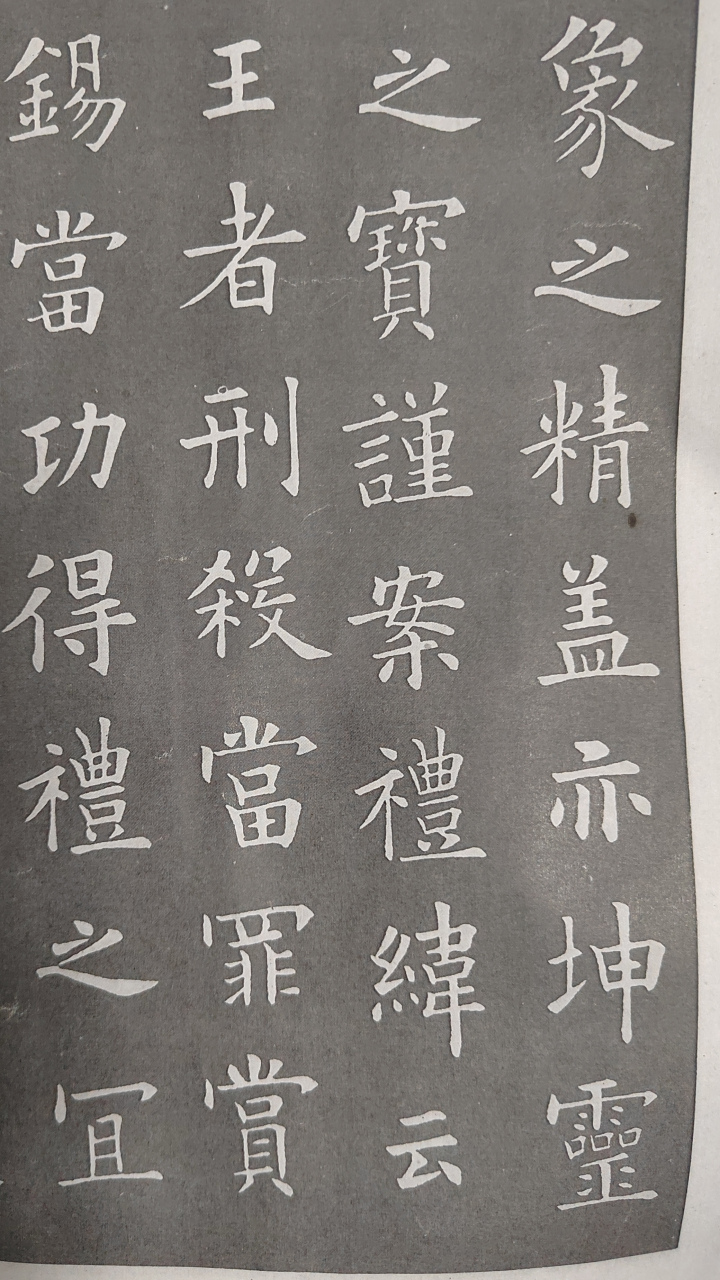 象之精盖亦坤靈
之寶謹案禮緯云
王者刑殺當罪賞
錫當功得禮之冝